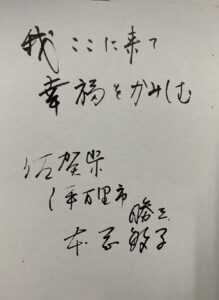 我ここに来て
幸福をかみしむ
佐賀県
伊万里市
勝三
本 敏子